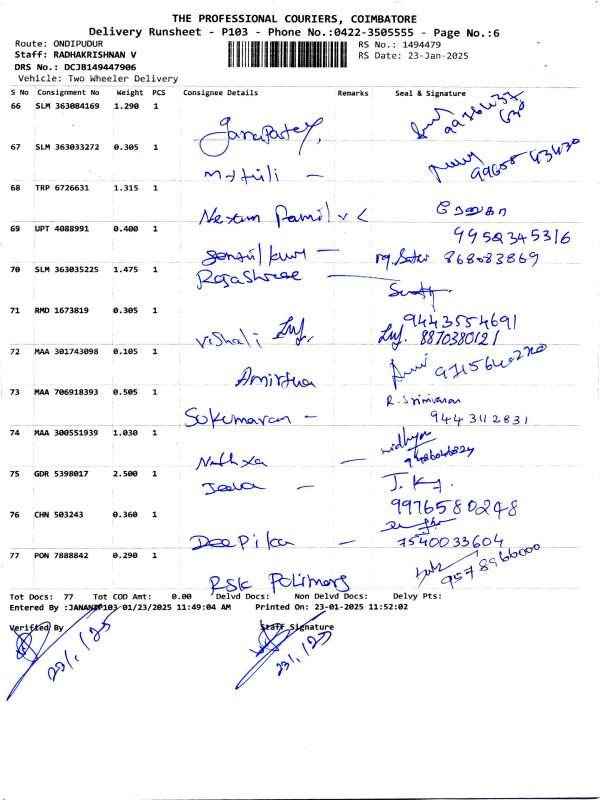 THE PROFESSIONAL COURIERS, COIMBATORE
Delivery Runsheet - P103 - Phone No.:0422-3505555 - Page No.:6
Route: ONDIPUDUR
RS No.: 1494479
Staff: RADHAKRISHNAN V
RS Date: 23-Jan-2025
DRS No.: DCJB149447906
Vehicle: Two Wheeler Delivery
S No Consignment No Weight PCS Consignee Details Remarks Seal & Signature
66 SLM 363084169 1.290 1
67 SLM 363033272 0.305 1
68 TRP 6726631 1.315 1
69 UPT 4088991 0.400 1
9952345316
868083869
70 SLM 363035225 1.475 1
Rajashree
71 RMD 1673819 0.305 1
9443554691
Vishali
8870380121
72 MAA 301743098 0.105 1
Amirtha
73 MAA 706918393 0.505 1
R. Srinivasan
Sukumaran -
9443112831
74 MAA 300551939 1.030 1
75 GDR 5398017 2.500 1
Jeeva -
J. K
76 CHN 503243 0.360 1
9976580248
Deepika -
7540033604
77 PON 7888842 0.290 1
9578966000
RSK Polimers
Tot Docs: 77 Tot COD Amt: 0.00 Delvd Docs: Non Delvd Docs: Delvy Pts:
Entered By :JANANIP103 01/23/2025 11:49:04 AM Printed On: 23-01-2025 11:52:02
Verified By Staff Signature
23/1/25